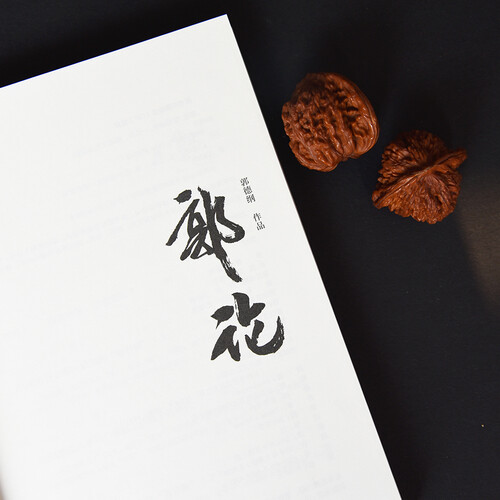 郭论
郭德纲 作品